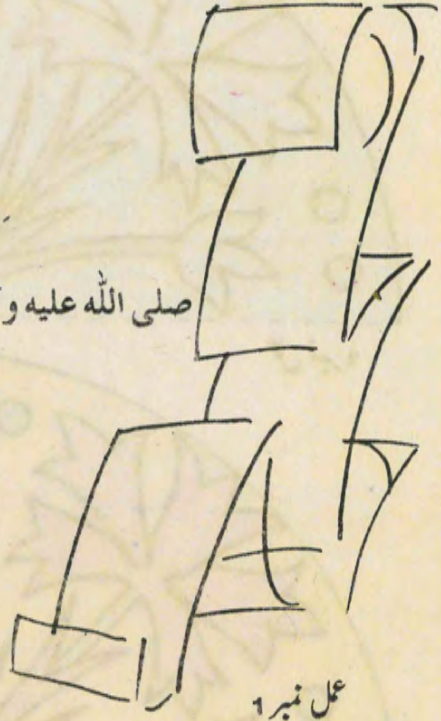 صلى الله عليه و
عمل نمبر 1